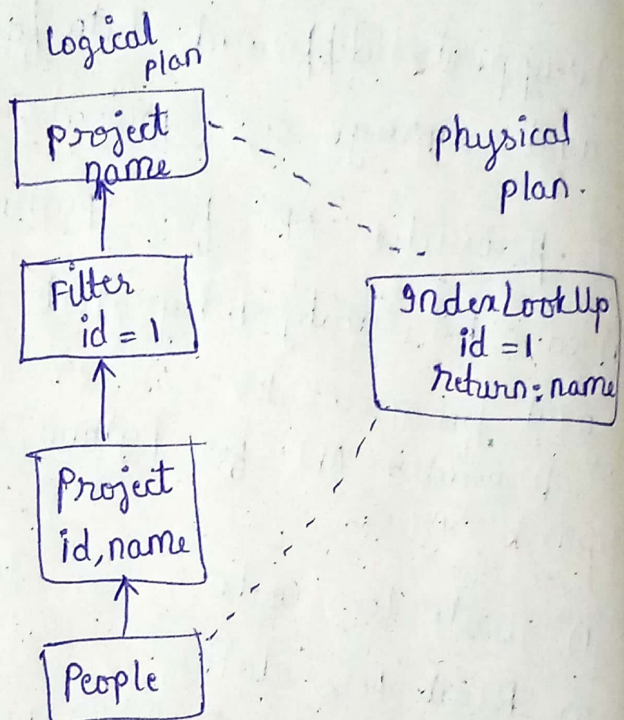 Logical
plan
project
name
Filter
id = 1.
Project
id, name
People
physical
plan.
IndexLookUp
id = 1
return: name